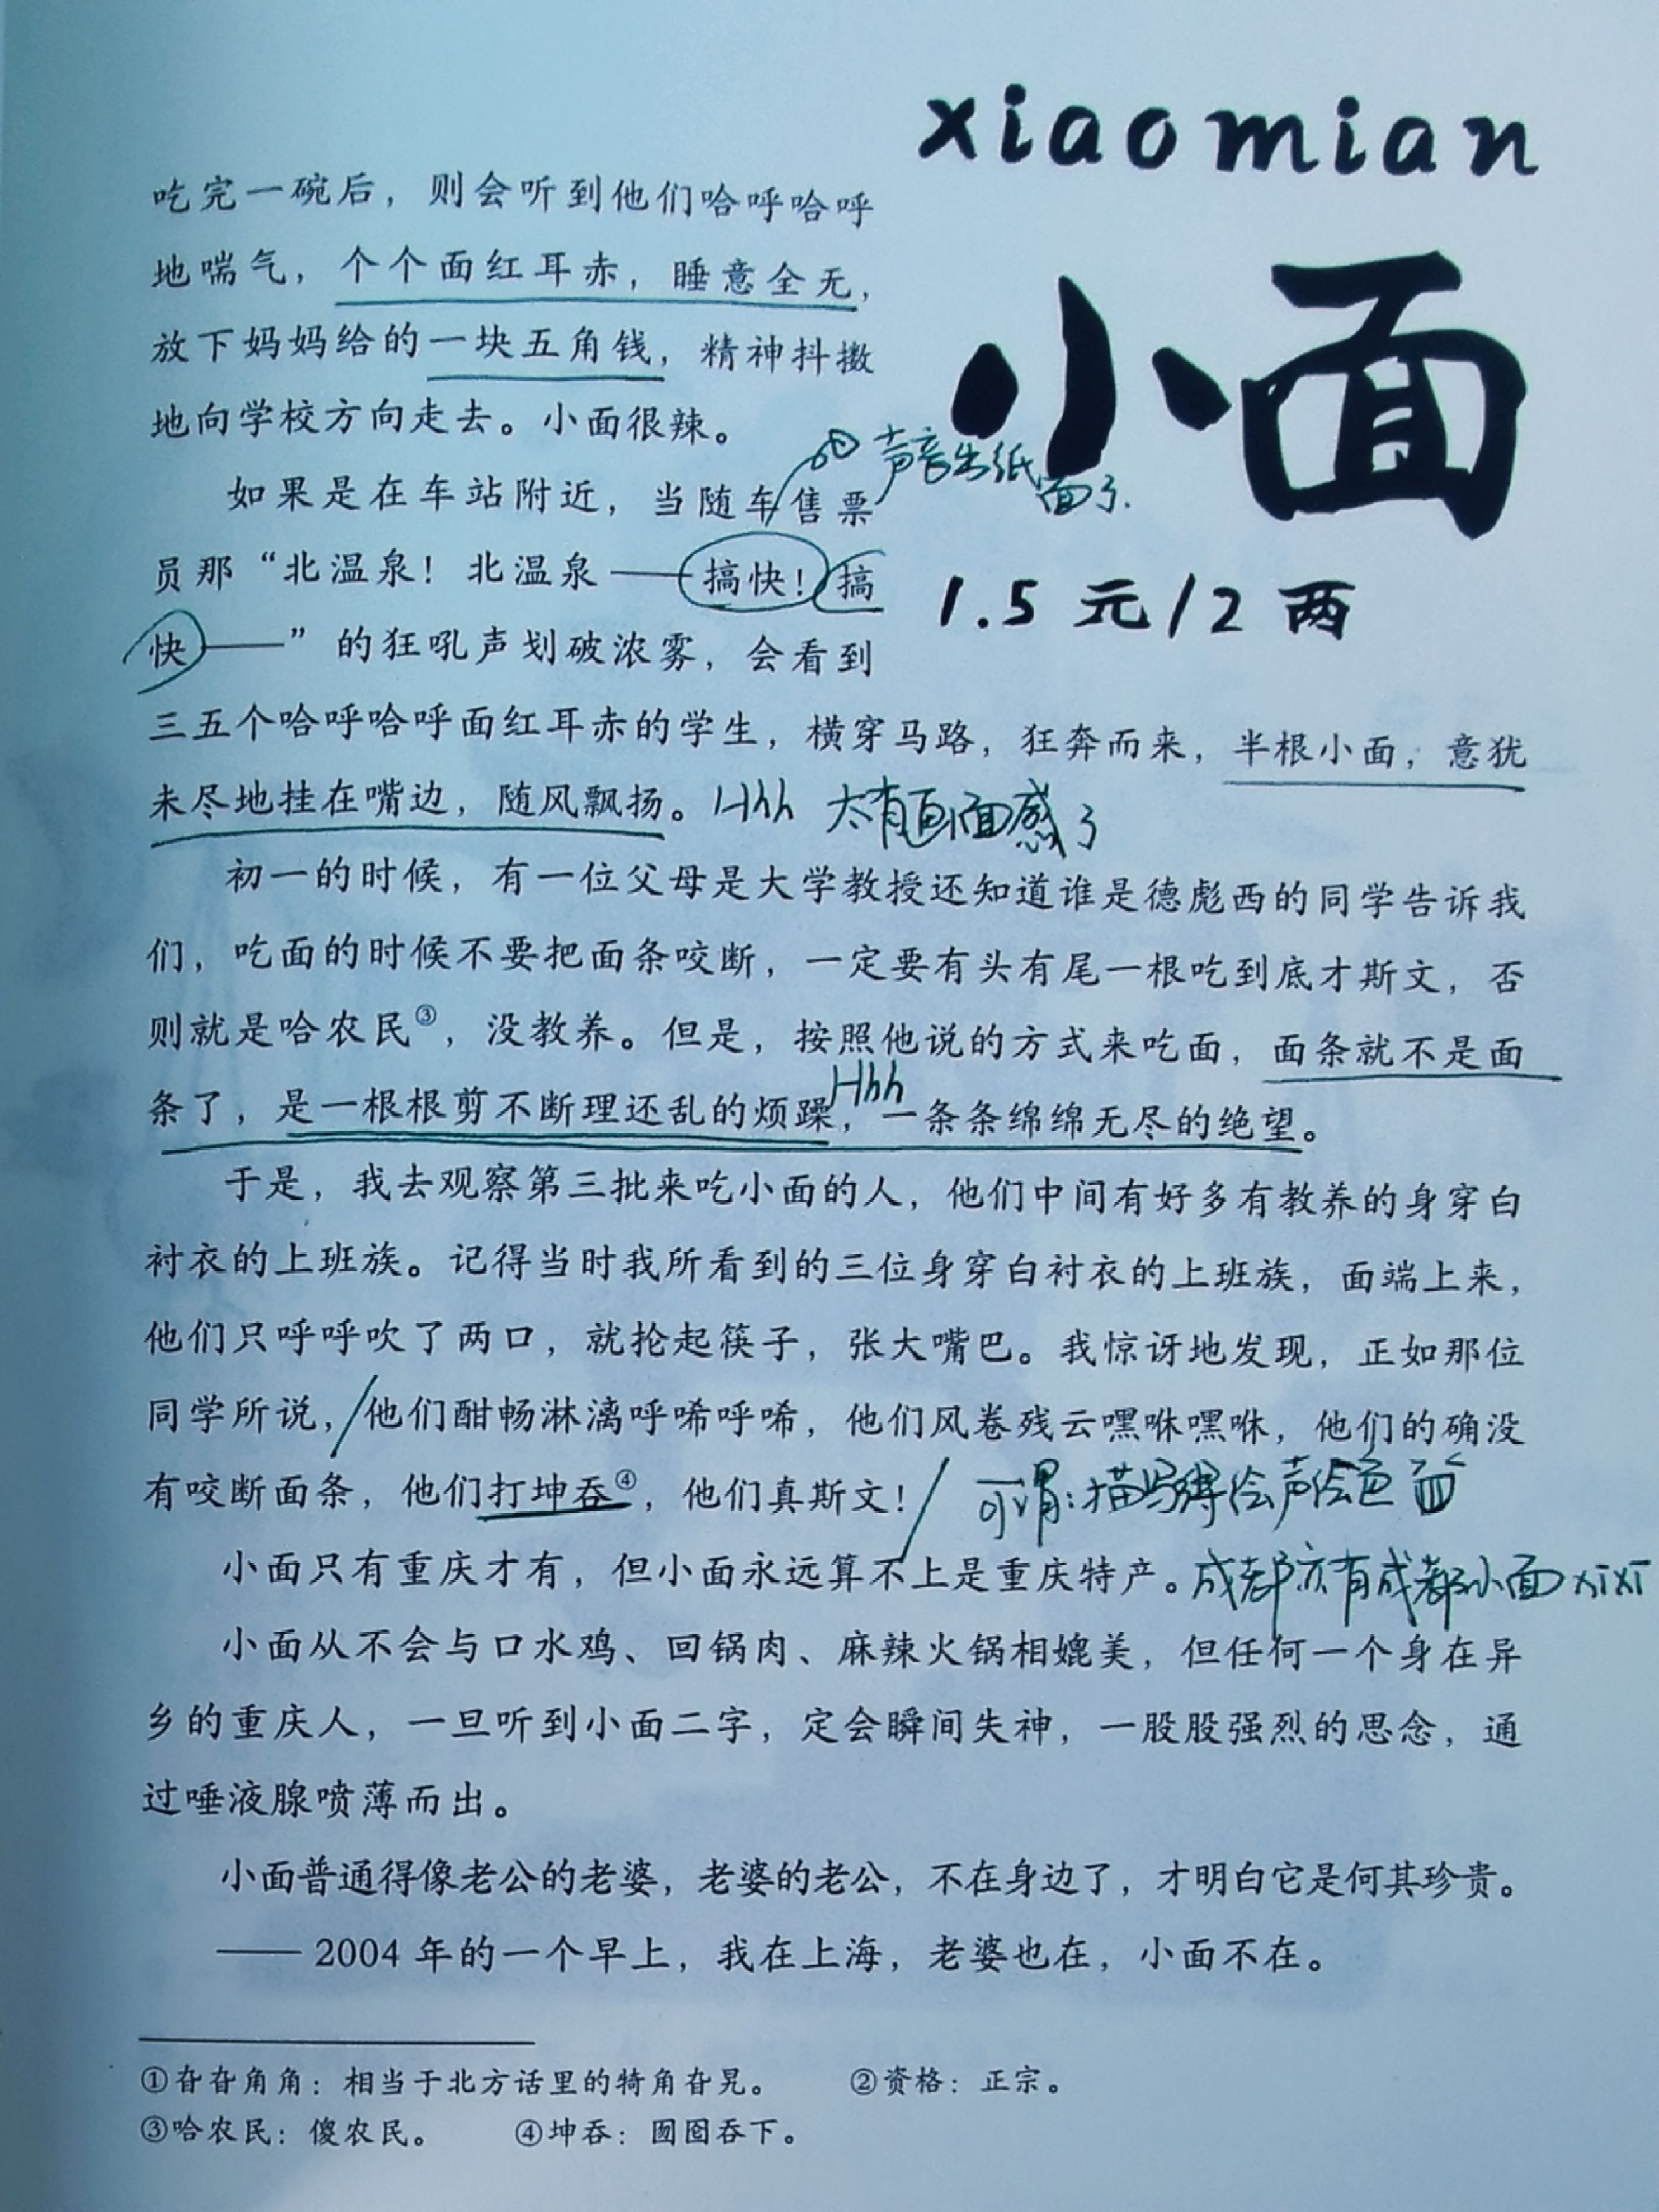 xiaomian
小面
1.5元/2两
吃完一碗后，则会听到他们哈呼哈呼
地喘气，个个面红耳赤，睡意全无，
放下妈妈给的一块五角钱，精神抖擞
地向学校方向走去。小面很辣。
声音出纸
面了.
如果是在车站附近，当随车售票
员那“北温泉！北温泉——搞快！搞
快——”的狂吼声划破浓雾，会看到
三五个哈呼哈呼面红耳赤的学生，横穿马路，狂奔而来，半根小面，意犹
未尽地挂在嘴边，随风飘扬。Hhh 太有画面感了
初一的时候，有一位父母是大学教授还知道谁是德彪西的同学告诉我
们，吃面的时候不要把面条咬断，一定要有头有尾一根吃到底才斯文，否
则就是哈农民③，没教养。但是，按照他说的方式来吃面，面条就不是面
Hhh
条了，是一根根剪不断理还乱的烦躁，一条条绵绵无尽的绝望。
于是，我去观察第三批来吃小面的人，他们中间有好多有教养的身穿白
衬衣的上班族。记得当时我所看到的三位身穿白衬衣的上班族，面端上来，
他们只呼呼吹了两口，就抡起筷子，张大嘴巴。我惊讶地发现，正如那位
同学所说，他们酣畅淋漓呼唏呼唏，他们风卷残云嘿咻嘿咻，他们的确没
有咬断面条，他们打坤吞④，他们真斯文！ 可谓：描写得绘声绘色
小面只有重庆才有，但小面永远算不上是重庆特产。成都亦有成都小面xixi
小面从不会与口水鸡、回锅肉、麻辣火锅相媲美，但任何一个身在异
乡的重庆人，一旦听到小面二字，定会瞬间失神，一股股强烈的思念，通
过唾液腺喷薄而出。
小面普通得像老公的老婆，老婆的老公，不在身边了，才明白它是何其珍贵。
——2004年的一个早上，我在上海，老婆也在，小面不在。
①旮旮角角：相当于北方话里的犄角旮旯。 ②资格：正宗。
③哈农民：傻农民。 ④坤吞：囫囵吞下。